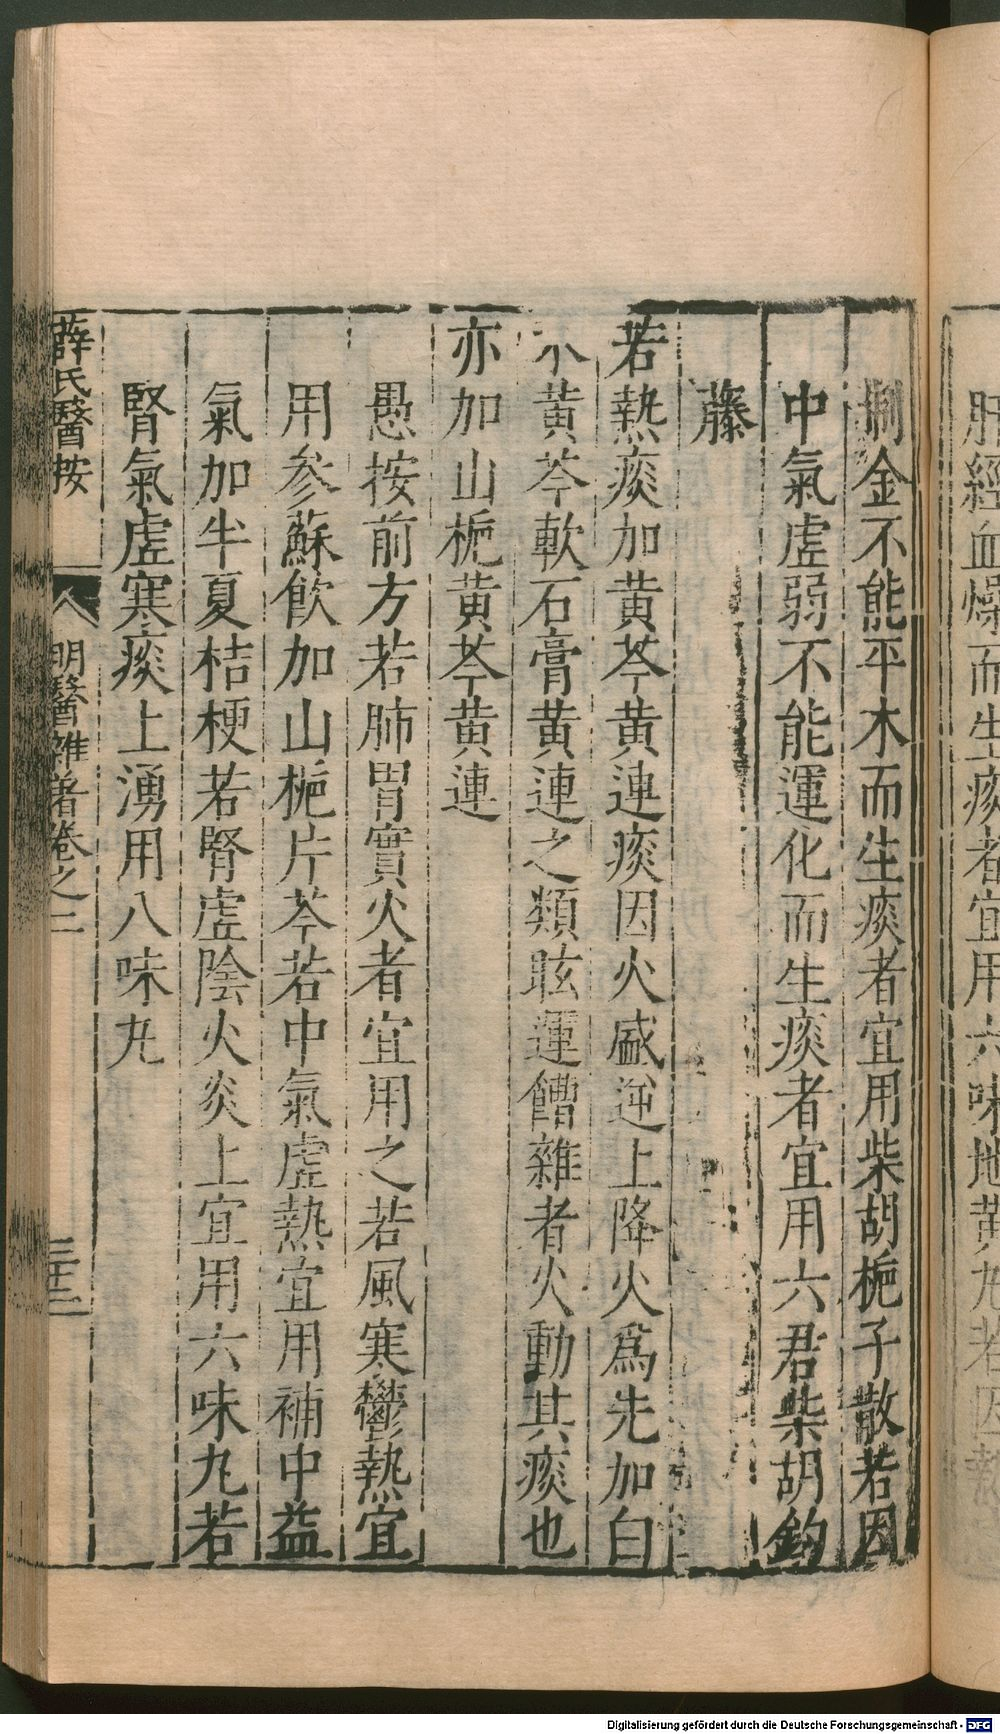 肝經血燥而生痰者宜用六味地黃丸若因
金不能平木而生痰者宜用柴胡梔子散若因
中氣虛弱不能運化而生痰者宜用六君柴胡鈎
藤
若熱痰加黃芩黃連痰因火盛逆上降火爲先加白
朮黃芩軟石膏黃連之類眩運饡雜者火動其痰也
亦加山梔黃芩黃連
愚按前方若肺胃實火者宜用之若風寒鬱熱宜
用參蘇飲加山梔片芩若中氣虛熱宜用補中益
氣加半夏桔梗若腎虛陰火炎上宜用六味丸若
腎氣虛寒痰上湧用八味丸
薛氏醫按 明醫雜著卷之二 三十二
Digitalisierung gefördert durch die Deutsche Forschungsgemeinschaft - DFG